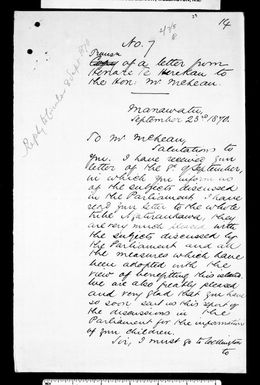 14
No. 7
of a letter from
Honatete Herekau to
the Hon. Mr McLean.
Manawatu,
September 23rd 1870.
To Mr McLean,
Salutations to
you. I have received your
letter of the 8th of September,
in which you inform us
of the subjects discussed
in the Parliament. I have
read your letter to the whole
tribe Ngatiraukawa, they
are very much pleased with
the subjects discussed by
the Parliament and all
the measures which have
been adopted with the
view of benefitting this island.
We are also greatly pleased
and very glad that you have
so soon sent us this report of
the discussions in the
Parliament for the information
of your children.
Sir, I must go to Wellington
to